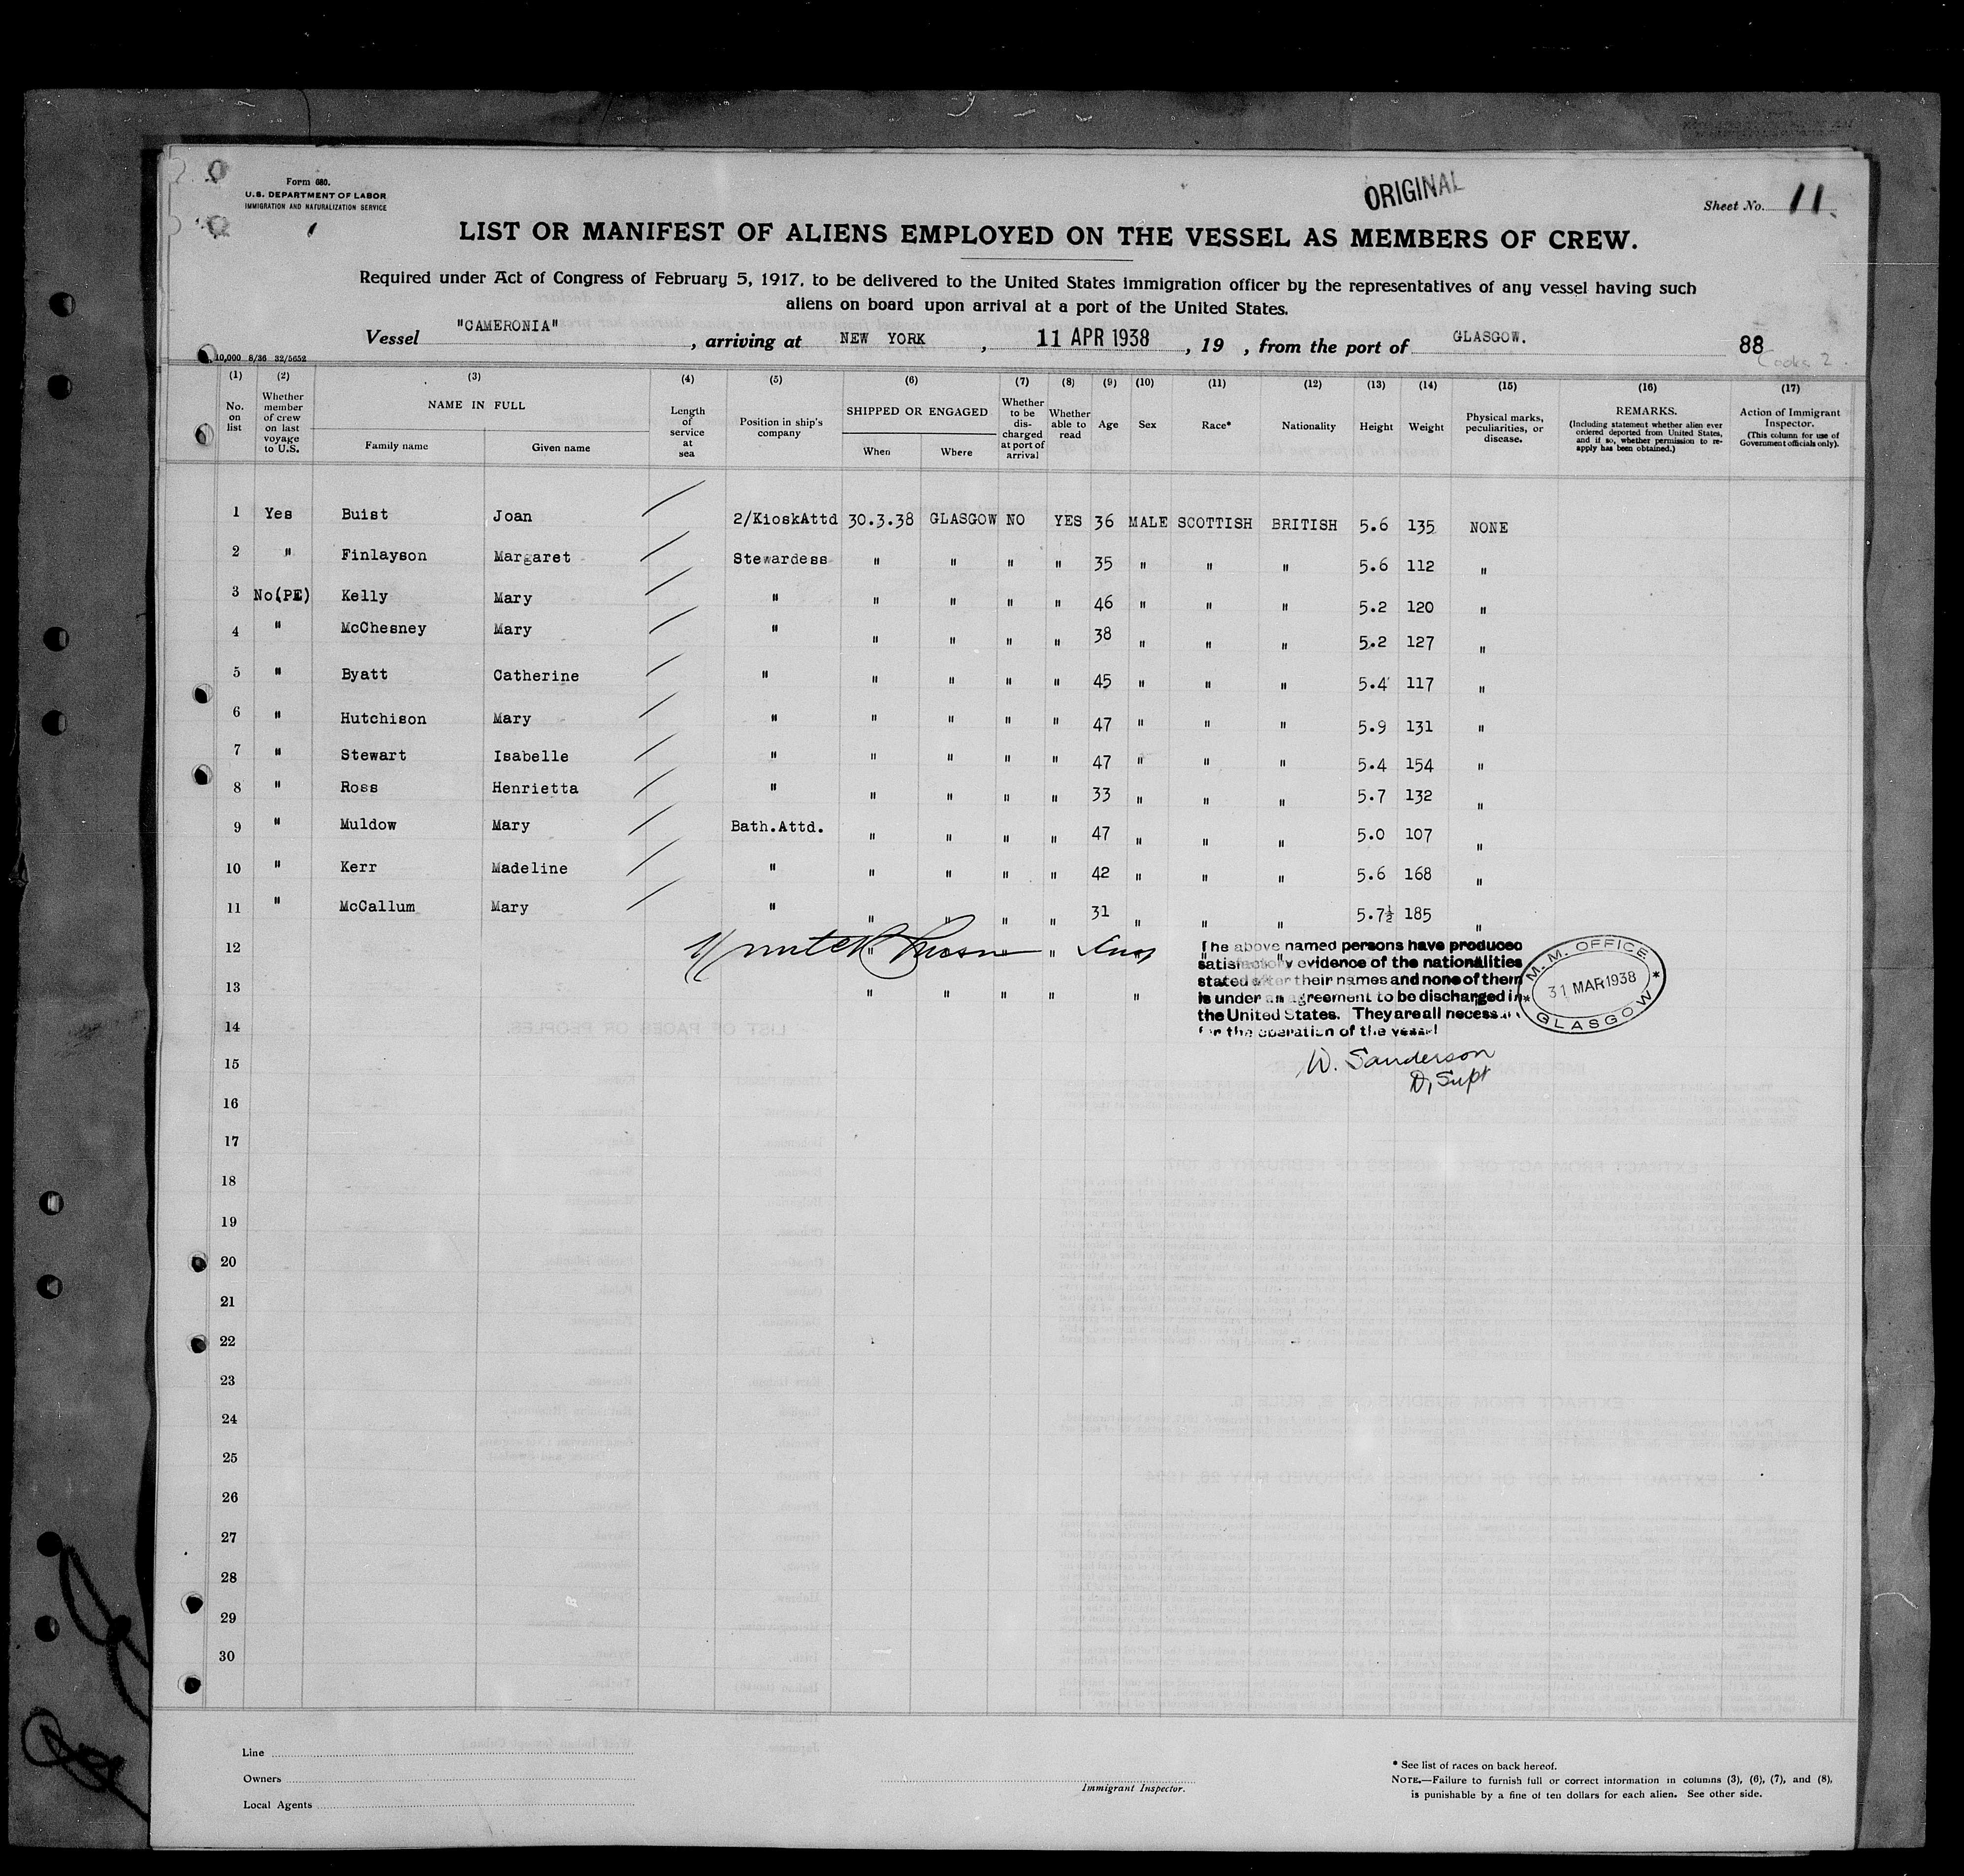 Form 680.
U.S. DEPARTMENT OF LABOR
IMMIGRATION AND NATURALIZATION SERVICE
ORIGINAL
Sheet No. 11
LIST OR MANIFEST OF ALIENS EMPLOYED ON THE VESSEL AS MEMBERS OF CREW.
Required under Act of Congress of February 5, 1917, to be delivered to the United States immigration officer by the representatives of any vessel having such
aliens on board upon arrival at a port of the United States.
Vessel "CAMERONIA", arriving at NEW YORK, 11 APR 1938, 19 , from the port of GLASGOW. 88
10,000 8/36 32/5652
(1) (2) (3) (4) (5) (6) (7) (8) (9) (10) (11) (12) (13) (14) (15) (16) (17)
No. on list
Whether member of crew on last voyage to U.S.
NAME IN FULL
Family name
Given name
Length of service at sea
Position in ship's company
SHIPPED OR ENGAGED
When
Where
Whether to be discharged at port of arrival
Whether able to read
Age
Sex
Race*
Nationality
Height
Weight
Physical marks, peculiarities, or disease.
REMARKS.
(Including statement whether alien ever ordered deported from United States, and if so, whether permission to re-apply has been obtained.)
Action of Immigrant Inspector.
(This column for use of Government officials only).
1 Yes Buist Joan 2/KioskAttd 30.3.38 GLASGOW NO YES 36 MALE SCOTTISH BRITISH 5.6 135 NONE
2 " Finlayson Margaret Stewardess " " " " 35 " " " 5.6 112 "
3 No(PE) Kelly Mary " " " " " 46 " " " 5.2 120 "
4 " McChesney Mary " " " " " 38 " " " 5.2 127 "
5 " Byatt Catherine " " " " " 45 " " " 5.4 117 "
6 " Hutchison Mary " " " " " 47 " " " 5.9 131 "
7 " Stewart Isabelle " " " " " 47 " " " 5.4 154 "
8 " Ross Henrietta " " " " " 33 " " " 5.7 132 "
9 " Muldow Mary Bath.Attd. " " " " 47 " " " 5.0 107 "
10 " Kerr Madeline " " " " " 42 " " " 5.6 168 "
11 " McCallum Mary " " " " " 31 " " " 5.7½ 185 "
12
13 " " " " "
14
15
16
17
18
19
20
21
22
23
24
25
26
27
28
29
30
The above named persons have produced
satisfactory evidence of the nationalities
stated after their names and none of them
is under an agreement to be discharged in
the United States. They are all necessary
for the operation of the vessel
M. M. OFFICE
31 MAR 1938
GLASGOW
W. Sanderson
D, Supt
Line
Owners
Local Agents
Immigrant Inspector.
* See list of races on back hereof.
NOTE.—Failure to furnish full or correct information in columns (3), (6), (7), and (8),
is punishable by a fine of ten dollars for each alien. See other side.